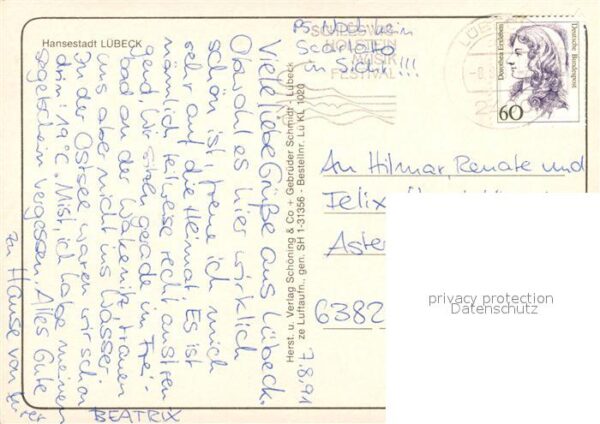 Hansestadt LÜBECK
PS Noch kein
Scarlatto
in Sicht!!!
SCHLESWIG
HOLSTEIN
MUSIK
FESTIVAL
Dorothea Erxleben
Deutsche Bundespost
60
Viele liebe Grüße aus Lübeck.
Obwohl es hier wirklich
schön ist, freue ich mich
sehr auf die Heimat. Es ist
nämlich teilweise recht anstren
gend. Wir sitzen gerade im Frei-
bad an der Wakenitz, trauen
uns aber nicht ins Wasser.
In der Ostsee waren wir schon
drin: 19°C. Mist, ich habe meinen
Segelschein vergessen. Alles Gute
zu Hause von Eurer
BEATRIX
7.8.91
Herst. u. Verlag Schöning & Co + Gebrüder Schmidt - Lübeck
ze Luftaufn., gen. SH 1-31356 - Bestellnr. Lü KL 1020
An Hilmar, Renate und
Felix
Aster
6382
privacy protection
Datenschutz